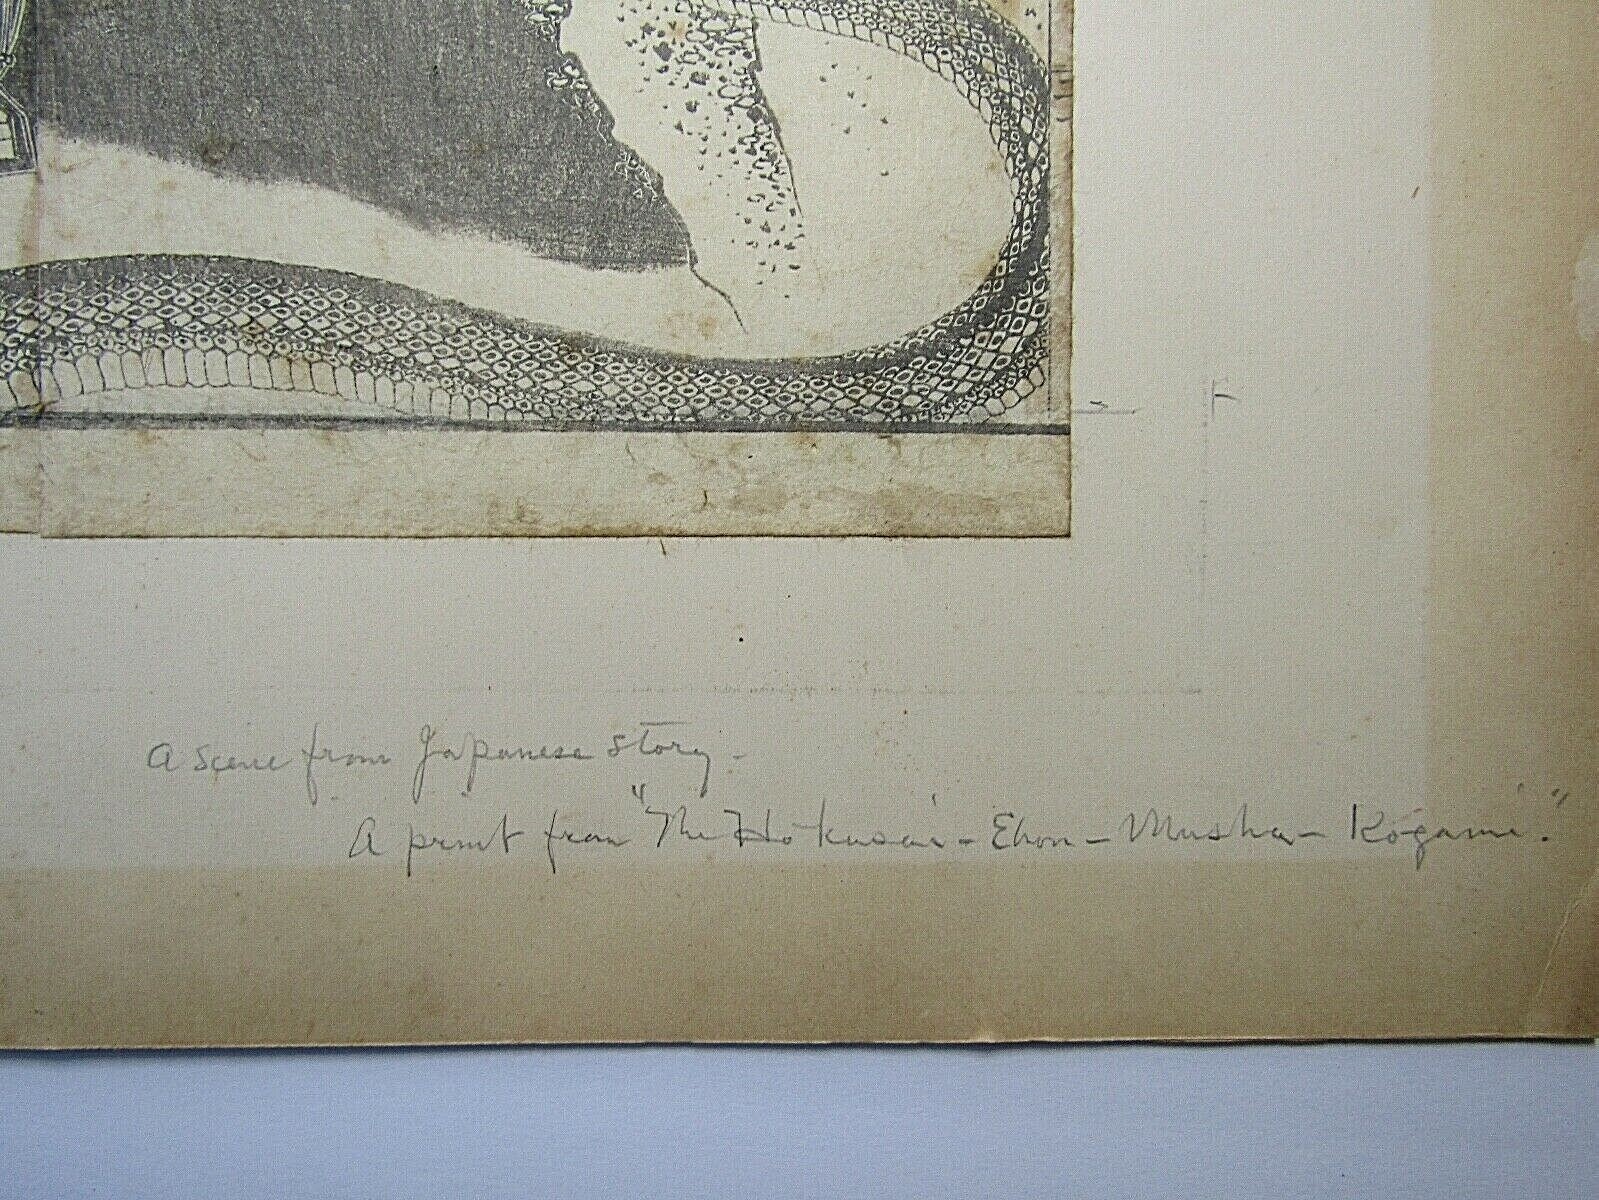 A scene from Japanese story -
A print from "The Hokusai - Ehon - Musha - Kōgami."